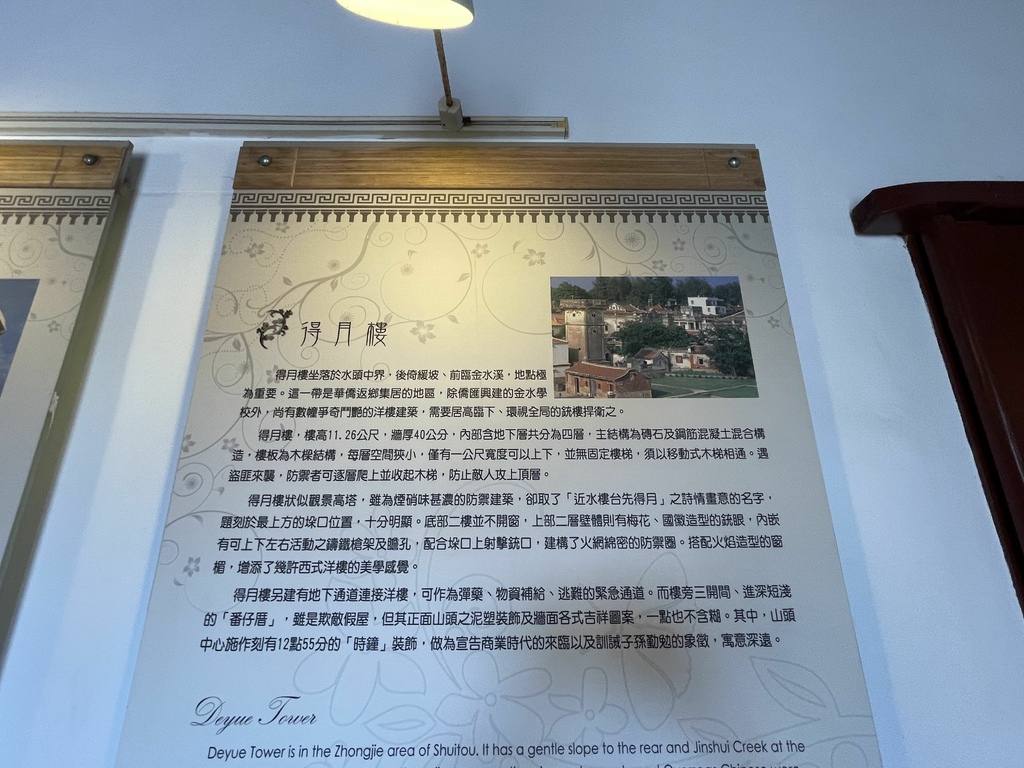 得月樓
得月樓坐落於水頭中界，後倚緩坡、前臨金水溪，地點極
為重要。這一帶是華僑返鄉集居的地區，除僑匯興建的金水學
校外，尚有數幢爭奇鬥艷的洋樓建築，需要居高臨下、環視全局的銃樓捍衛之。
得月樓，樓高11.26公尺，牆厚40公分，內部含地下層共分為四層，主結構為磚石及鋼筋混凝土混合構
造，樓板為木樑結構，每層空間狹小，僅有一公尺寬度可以上下，並無固定樓梯，須以移動式木梯相通。遇
盜匪來襲，防禦者可逐層爬上並收起木梯，防止敵人攻上頂層。
得月樓狀似觀景高塔，雖為煙硝味甚濃的防禦建築，卻取了「近水樓台先得月」之詩情畫意的名字，
題刻於最上方的垛口位置，十分明顯。底部二樓並不開窗，上部二層壁體則有梅花、國徽造型的銃眼，內嵌
有可上下左右活動之鑄鐵槍架及瞻孔，配合垛口上射擊銃口，建構了火網綿密的防禦圈。搭配火焰造型的窗
楣，增添了幾許西式洋樓的美學感覺。
得月樓另建有地下通道連接洋樓，可作為彈藥、物資補給、逃難的緊急通道。而樓旁三開間、進深短淺
的「番仔厝」，雖是欺敵假屋，但其正面山頭之泥塑裝飾及牆面各式吉祥圖案，一點也不含糊。其中，山頭
中心施作刻有12點55分的「時鐘」裝飾，做為宣告商業時代的來臨以及訓誡子孫勤勉的象徵，寓意深遠。
Deyue Tower
Deyue Tower is in the Zhongjie area of Shuitou. It has a gentle slope to the rear and Jinshui Creek at the